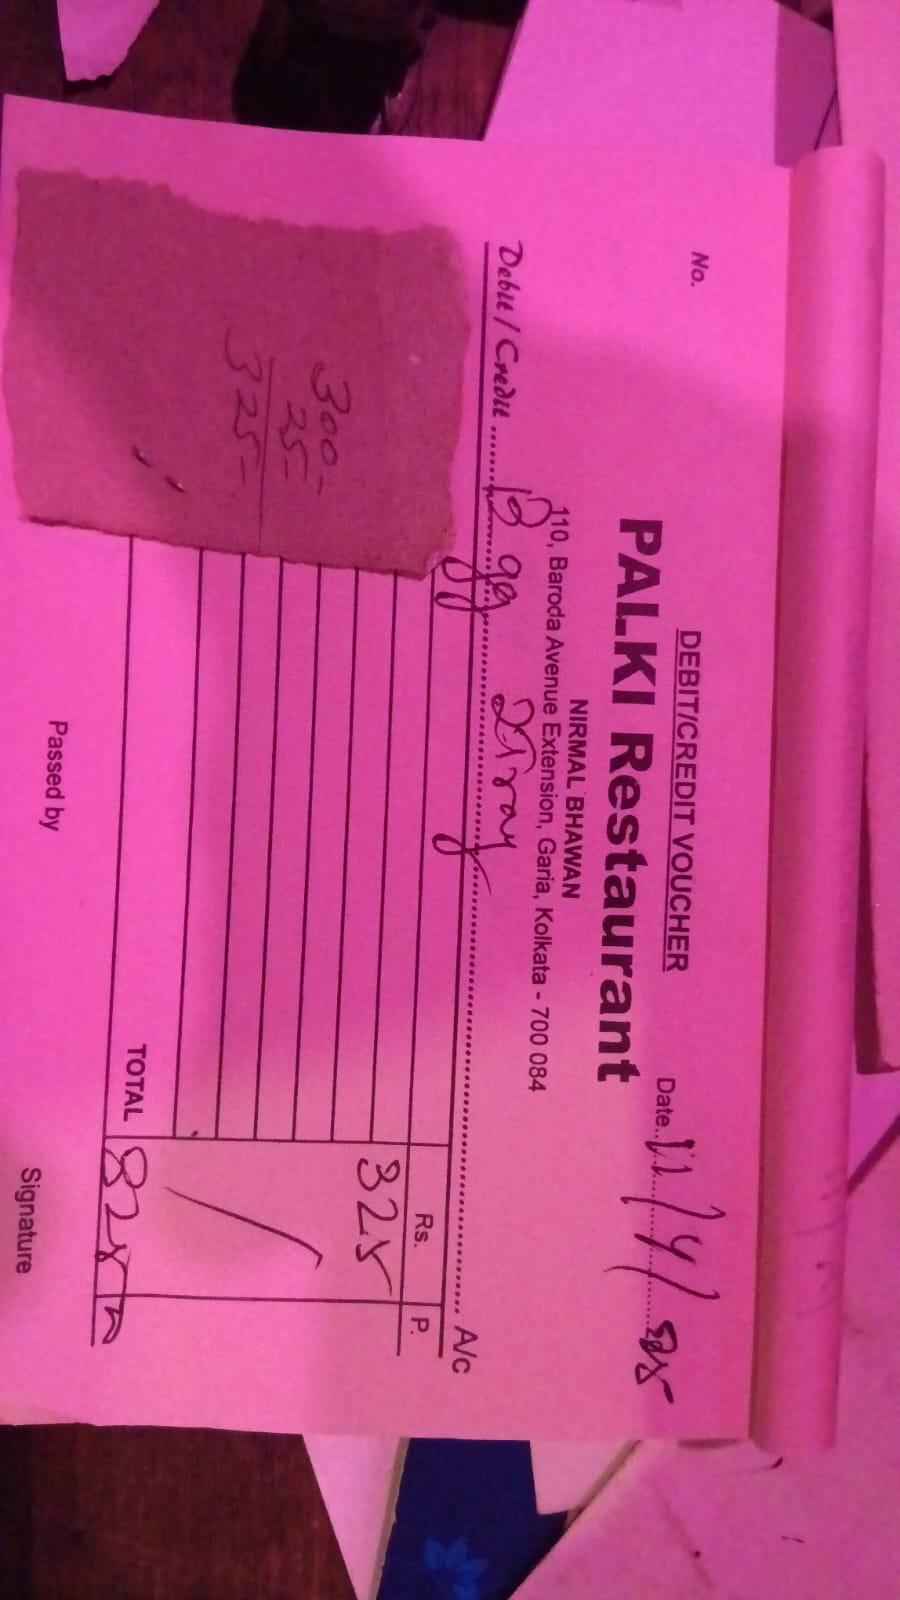 DEBIT/CREDIT VOUCHER
No.
Date 11/4/25
PALKI Restaurant
NIRMAL BHAWAN
110, Baroda Avenue Extension, Garia, Kolkata - 700 084
Debit / Credit Egg 2 Tray A/c
Rs. P.
325
300-
25=
325-
TOTAL 325
Passed by
Signature